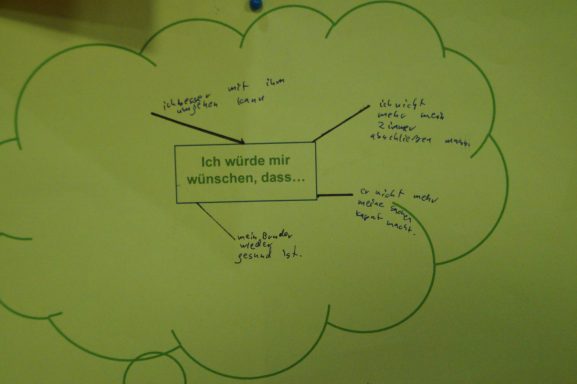 ich besser mit ihm
umgehen kann
ich nicht
mehr mein
Zimmer
abschließen muss.
Ich würde mir
wünschen, dass...
er nicht mehr
meine Sachen
kaputt macht.
mein Bruder
wieder
gesund ist.